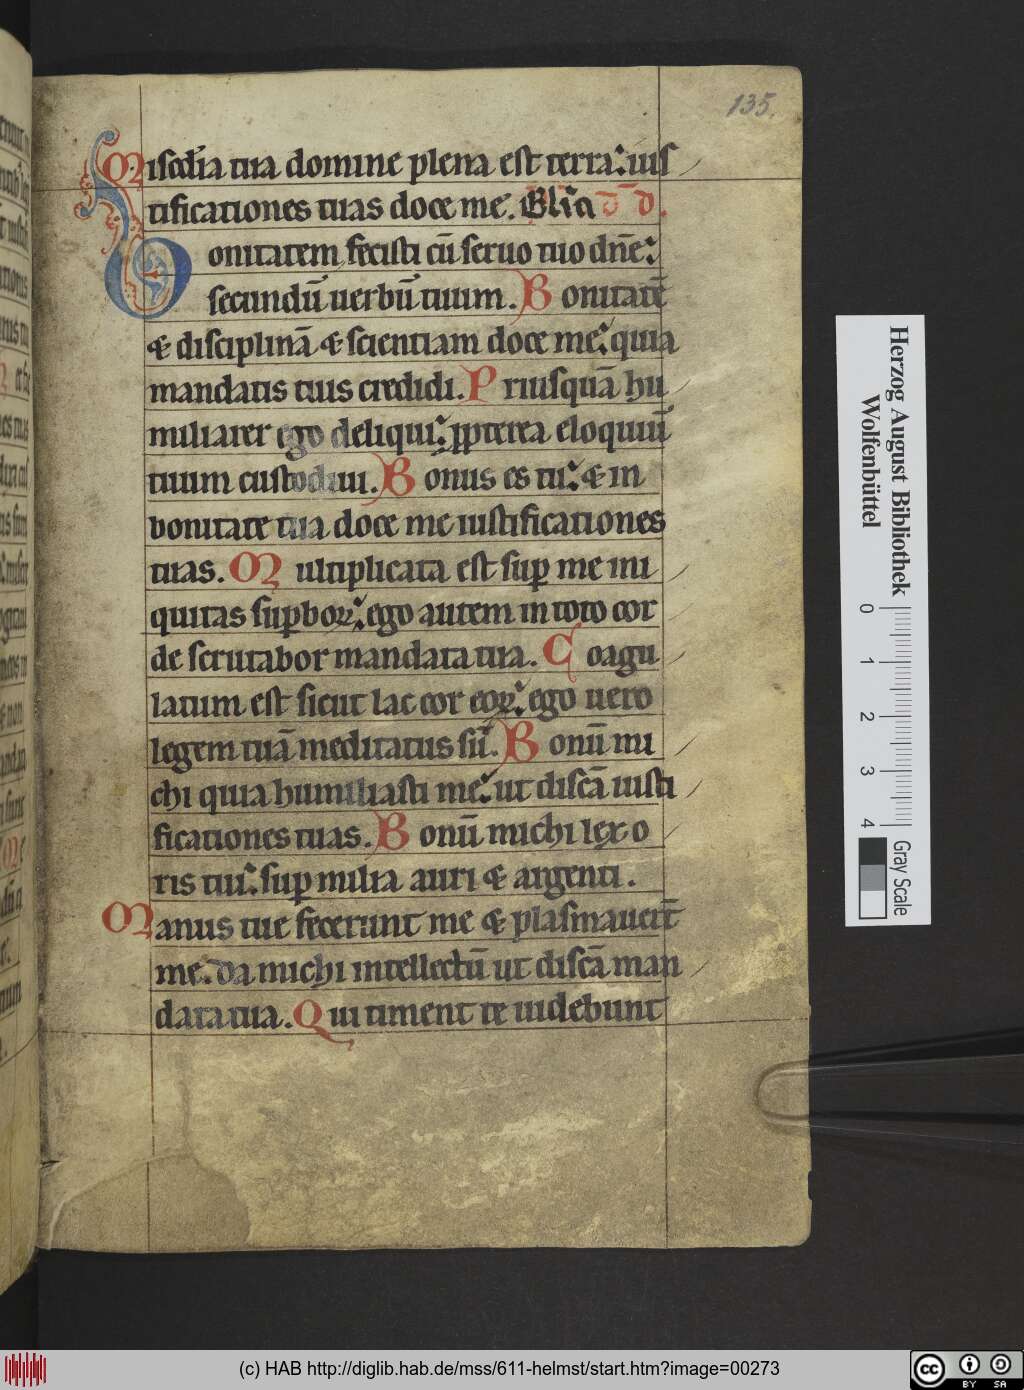 135.
Misc̄dia tua domine plena est terra: ius
tificationes tuas doce me. Gl̄ia
Bonitatem fecisti cū seruo tuo dn̄e:
secundū uerbū tuum. Bonitatē
& disciplinā & scientiam doce me: quia
mandatis tuis credidi. Priusquā hu
miliarer ego deliqui: ꝓpterea eloquiū
tuum custodiui. Bonus es tu: & in
bonitate tua doce me iustificationes
tuas. Multiplicata est suꝑ me ini
quitas suꝑboꝝ: ego autem in toto cor
de scrutabor mandata tua. Coagu
latum est sicut lac cor eoꝝ: ego uero
legem tuā meditatus sū. Bonū mi
chi quia humiliasti me: ut discā iusti
ficationes tuas. Bonū michi lex o
ris tui: suꝑ milia auri & argenti.
Manus tue fecerunt me & plasmauerūt
me: da michi intellectū ut discā man
data tua. Qui timent te uidebunt
Herzog August Bibliothek
Wolfenbüttel
0 1 2 3 4
Gray Scale
(c) HAB http://diglib.hab.de/mss/611-helmst/start.htm?image=00273
cc BY SA